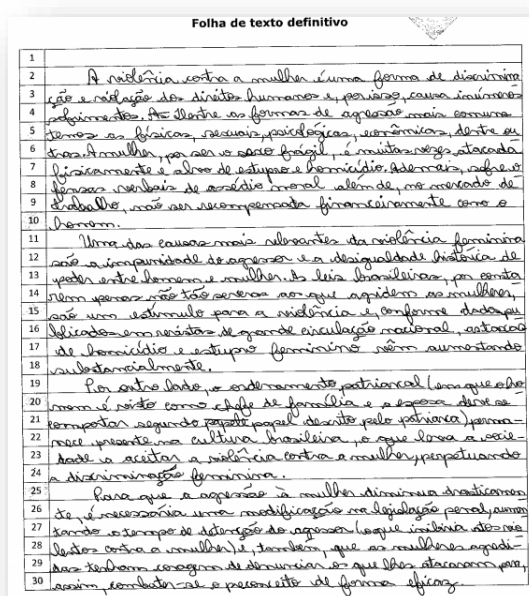 Folha de texto definitivo
1
2 A violência contra a mulher é uma forma de discrimina
3 ção e violação dos direitos humanos e, por isso, causa inúmeros
4 sofrimentos. As Dentre as formas de agressão mais comuns
5 temos as físicas, sexuais, psicológicas, econômicas, dentre ou
6 tras. A mulher, por ser o sexo frágil, é muitas vezes atacada
7 fisicamente e alvo de estupro e homicídio. Ademais, sofre o
8 fensas verbais de assédio moral além de, no mercado de
9 trabalho, não ser recompensada financeiramente como o
10 homem.
11 Uma das causas mais relevantes da violência feminina
12 são a impunidade do agressor e a desigualdade histórica de
13 poder entre homem e mulher. As leis brasileiras, por conta
14 rem penas não tão severas aos que agridem as mulheres,
15 são um estímulo para a violência e, conforme dados pu
16 blicados em revistas de grande circulação nacional, as taxas
17 de homicídio e estupro feminino vêm aumentando
18 substancialmente.
19 Por outro lado, o ordenamento patriarcal (em que o ho
20 mem é visto como chefe de família e a esposa deve se
21 comportar segundo papel descrito pelo patriarca) perma
22 nece presente na cultura brasileira, o que leva a socie
23 dade a aceitar a violência contra a mulher, perpetuando
24 a discriminação feminina.
25 Para que a agressão à mulher diminua drasticamen
26 te, é necessária uma modificação na legislação penal, aumen
27 tando o tempo de detenção do agressor (o que inibiria atos vio
28 lentos contra a mulher) e, também, que as mulheres agredi
29 das tenham coragem de denunciar os que lhes atacaram para,
30 assim, combater-se o preconceito de forma eficaz.